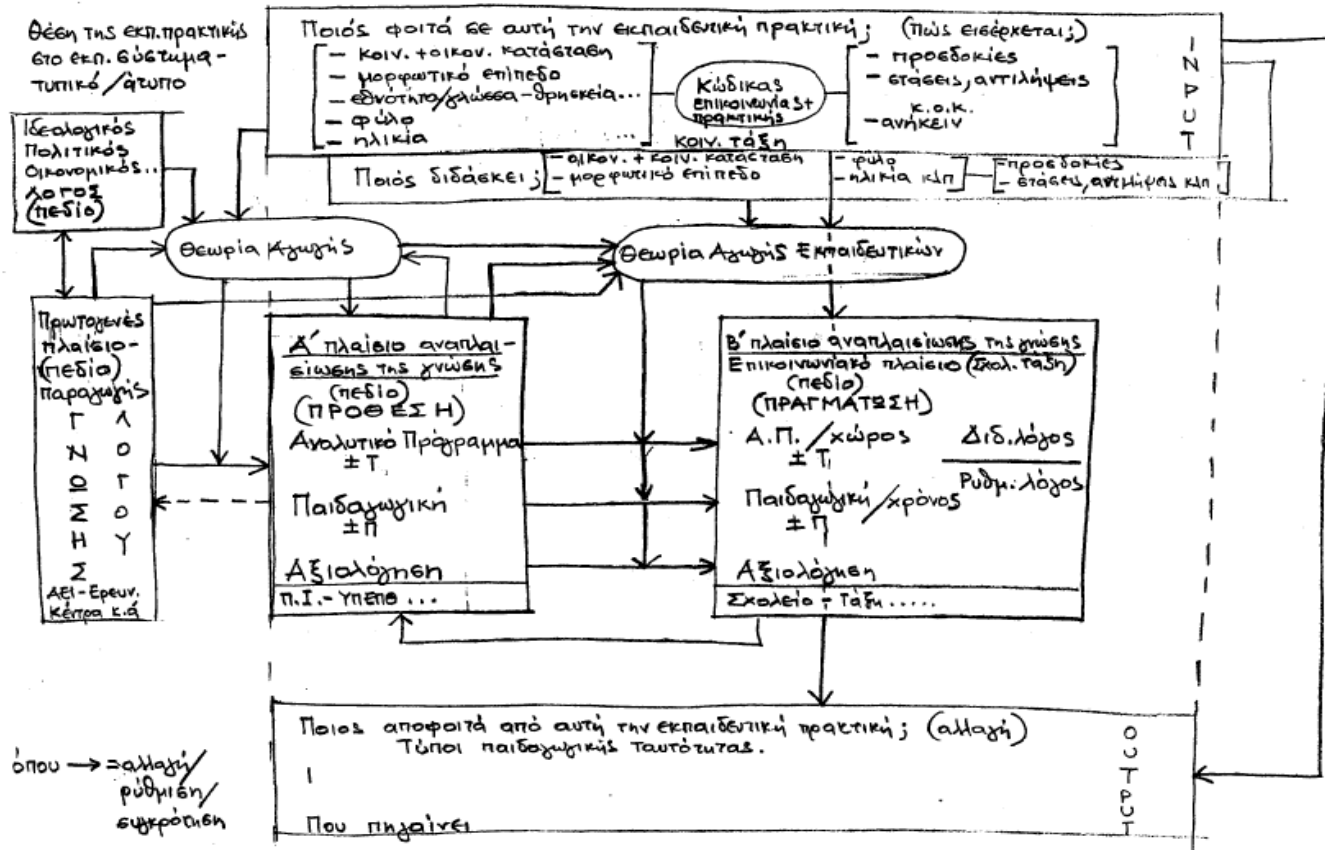 Θέση της εκπ. πρακτικής
στο εκπ. σύστημα -
τυπικό / άτυπο
Ποιός φοιτά σε αυτή την εκπαιδευτική πρακτική; (Πώς εισέρχεται;)
- κοιν. + οικον. κατάσταση
- μορφωτικό επίπεδο
- εθνότητα/γλώσσα - θρησκεία...
- φύλο
- ηλικία ....
Κώδικας
επικοινωνίας +
πρακτικής
κοιν. τάξη
- προσδοκίες
- στάσεις, αντιλήψεις
κ.ο.κ.
- ανήκειν
INPUT
Ποιός διδάσκει;
- οικον. + κοιν. κατάσταση
- μορφωτικό επίπεδο
- φύλο
- ηλικία κλπ
- προσδοκίες
- στάσεις, αντιλήψεις κλπ
Ιδεολογικός
Πολιτικός
Οικονομικός..
ΛΟΓΟΣ
(πεδίο)
Θεωρία Αγωγής
Θεωρία Αγωγής Εκπαιδευτικών
Πρωτογενές
πλαίσιο -
(πεδίο)
παραγωγής
ΓΝΩΣΗΣ
ΛΟΓΟΥ
ΑΕΙ - Ερευν.
Κέντρα κ.ά
Α΄ πλαίσιο αναπλαι-
σίωσης της γνώσης
(πεδίο)
(ΠΡΟΘΕΣΗ)
Αναλυτικό Πρόγραμμα
± Τ
Παιδαγωγική
± Π
Αξιολόγηση
Π.Ι. - ΥΠΕΠΘ ...
Β΄ πλαίσιο αναπλαισίωσης της γνώσης
Επικοινωνιακό πλαίσιο (Σχολ. Τάξη)
(πεδίο)
(ΠΡΑΓΜΑΤΩΣΗ)
Α.Π. / χώρος
± Τ
Διδ. λόγος
Ρυθμ. λόγος
Παιδαγωγική / χρόνος
± Π
Αξιολόγηση
Σχολείο - Τάξη .....
Ποιος αποφοιτά από αυτή την εκπαιδευτική πρακτική; (αλλαγή)
Τύποι παιδαγωγικής ταυτότητας.
Που πηγαίνει
OUTPUT
όπου → = αλλαγή/
ρύθμιση/
συγκρότηση